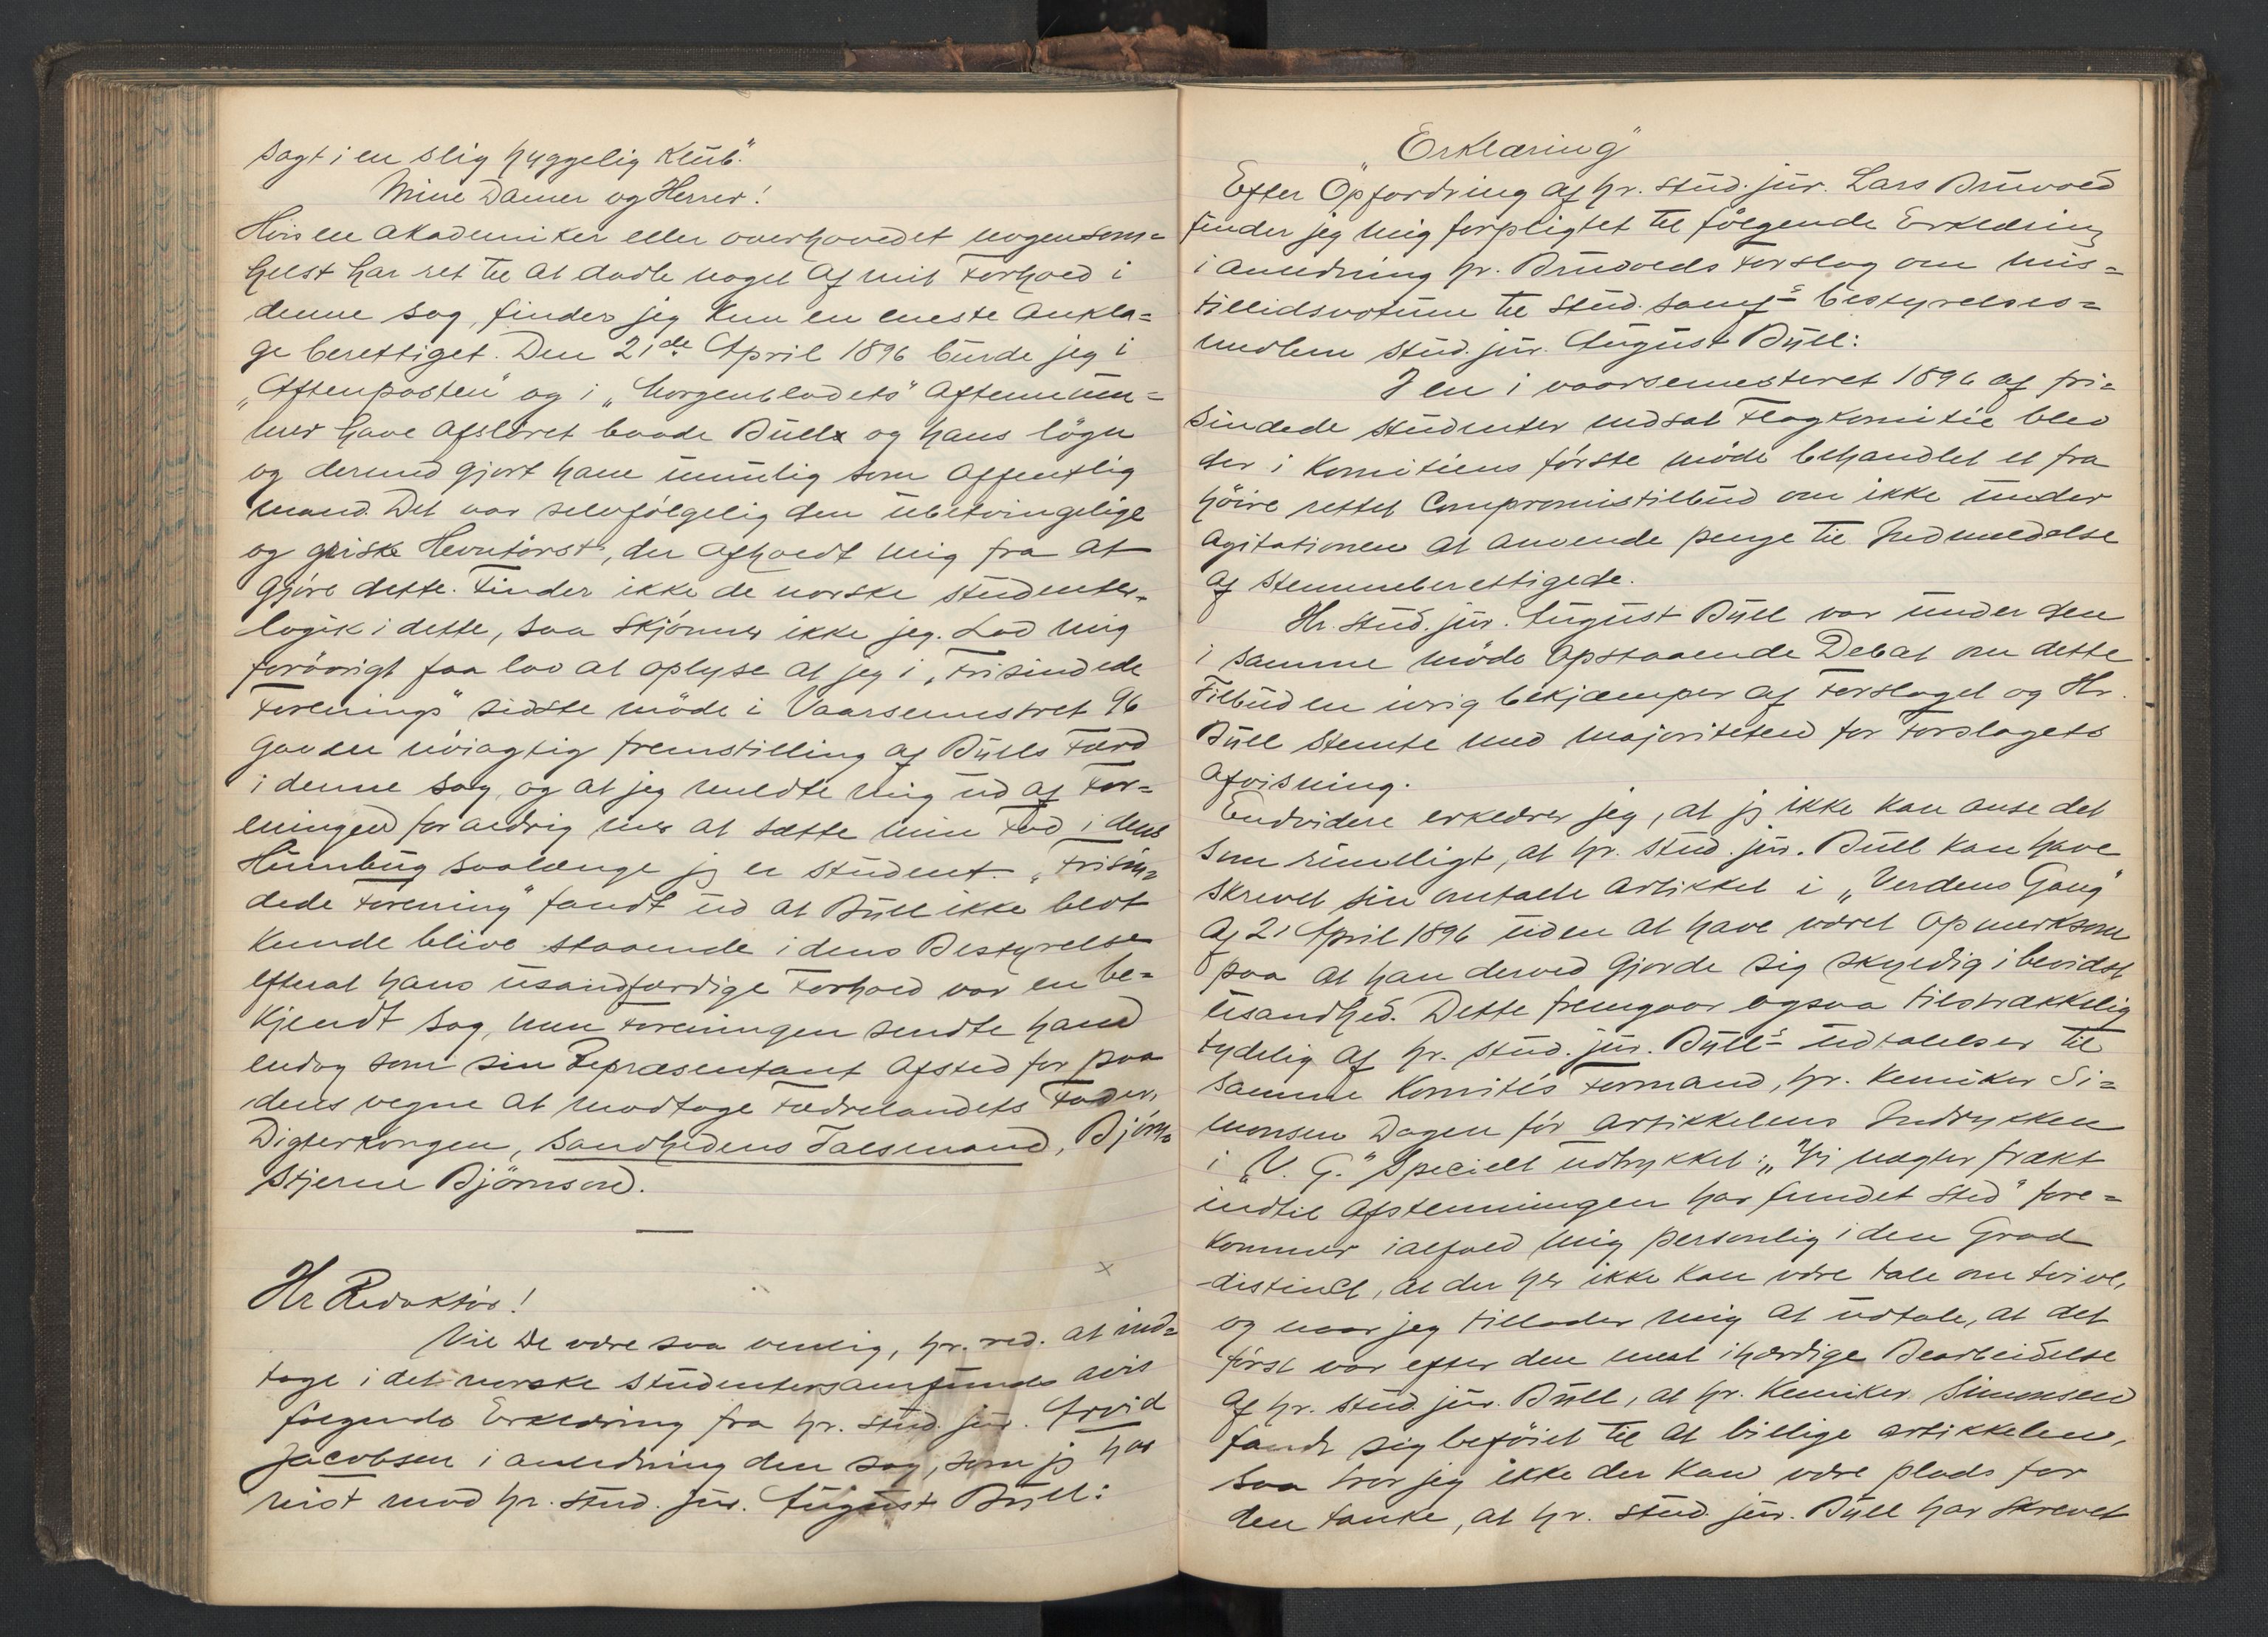 sagt i en slig hyggelig Klub".
Mine Damer og Herrer!
Hvis en Akademiker eller overhovedet nogensom=
helst har ret til at dadle noget af mit Forhold i
denne sag, finder jeg kun en eneste Ankla=
ge berettiget. Den 21de April 1896 burde jeg i
"Aftenposten" og i "Morgenbladets" Aftennum=
mer have afsløret baade Bull og hans løgn
og dermed gjort ham umulig som offentlig
mand. Det var selvfølgelig den ubetvingelige
og griske Hevntørst, der afholdt mig fra at
gjøre dette. Finder ikke de norske studenter
logik i dette, saa skjønner ikke jeg. Lad mig
forøvrigt faa lov at oplyse at jeg i "Frisindede
Forenings" sidste møde i Vaarsemestret 96
gav en nøiagtig fremstilling af Bulls Færd
i denne sag, og at jeg meldte mig ud af For=
eningen for aldrig mer at sætte min Fod i dens
Humbug saalænge jg er student. "Frisin=
dede Forening" fandt ud at Bull ikke blot
kunde blive staaende i dens Bestyrelse
efterat hans usandfærdige Forhold var en be=
kjendt sag, men Foreningen sendte ham
endog som sin Repræsentant afsted for paa
dens vegne at modtage Fædrelandets Fader,
Digterkongen, Sandhedens Talsmand, Bjørn=
stjerne Bjørnson.
Hr Redaktør!
x
Vil De være saa venlig, hr. red. at ind=
tage i det norske Studentersamfunds avis
følgende Erklæring fra hr. stud. jur. Arvid
Jacobsen i anledning den sag, som jg har
reist mod hr. stud. jur. August Bull:
"Erklæring"
Efter Opfordring af hr. stud. jur. Lars Bruvold
finder jeg mig forpligtet til følgende Erklæring
i anledning hr. Bruvolds Forslag om mis=
tillidsvotum til stud. samfs bestyrelses=
medlem stud. jur. August Bull:
I en i vaarsemesteret 1896 af fri=
sindede studenter nedsat Flagkomitie blev
der i Komitiens første møde behandlet et fra
høire rettet Compromistilbud om ikke under
agitationen at anvende penge til Indmeldelse
af stemmeberettigede.
Hr. stud. jur. August Bull var under den
i samme møde opstaaende Debat om dette
Tilbud en ivrig bekjæmper af Forslaget og Hr.
Bull stemte med majoriteten for Forslagets
afvisning.
Endvidere erklærer jeg, at jg ikke kan anse det
som rimeligt, at hr. stud. jur. Bull kan have
skrevet sin omtalte artikkel i "Verdens Gang"
af 21 April 1896 uden at have været opmerksom
paa at han derved gjorde sig skyldig i bevidst
usandhed. Dette fremgaar ogsaa tilstrækkelig
tydelig af hr. stud. jur. Bulls udtalelser til
samme Komités Formand, hr. kemiker Si=
monsen Dagen før artikkelens Indrykken
i "V. G." Specielt udtrykket: "Vi nægter frækt
indtil Afstemningen har fundet sted" fore=
kommer ialfald mig personlig i den Grad
distinct, at der her ikke kan være tale om tvivl,
og naar jeg tillader mig at udtale, at det
først var efter den mest ihærdige Bearbeidelse
af hr. stud. jur. Bull, at hr. Kemiker Simonsen
fandt sig beføiet til at billige artikkelen,
saa tror jeg ikke der kan være plads for
den tanke, at hr. stud. jur. Bull har skrevet